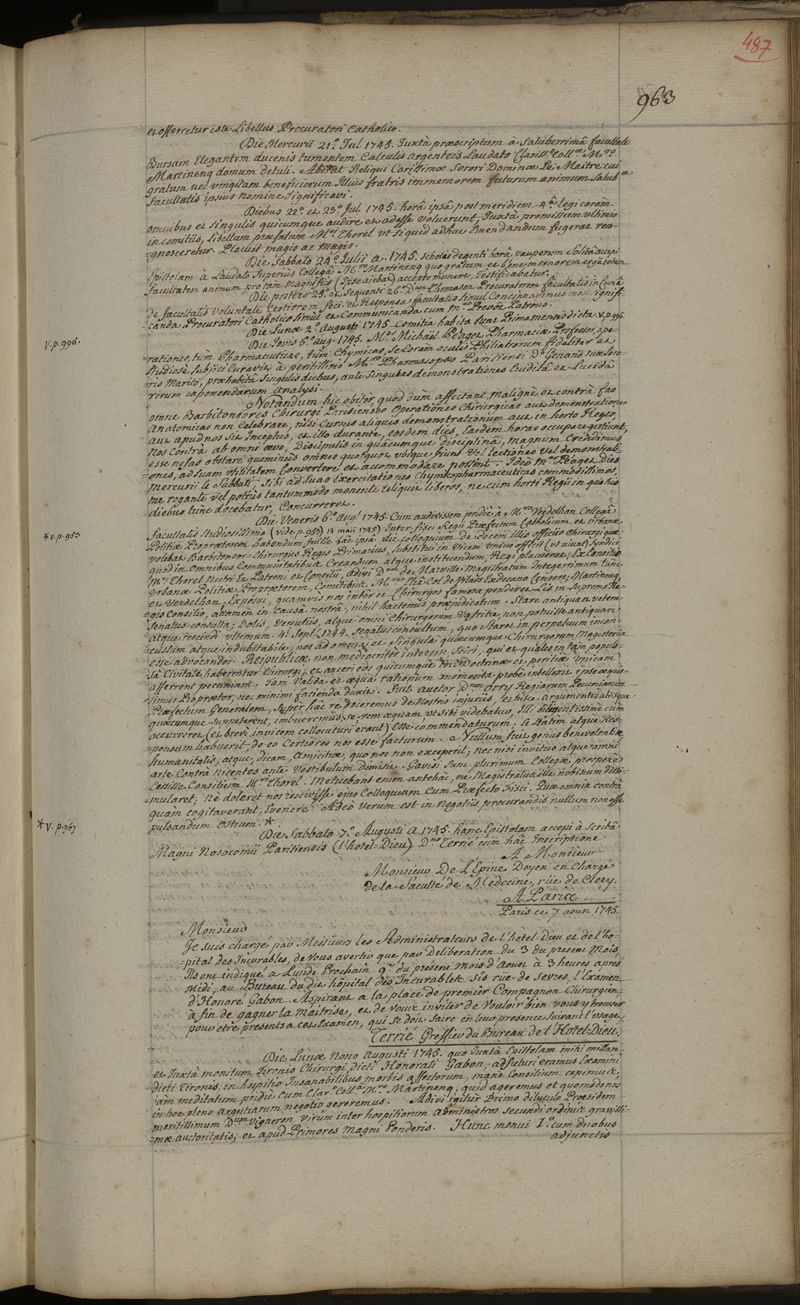 487
963
et offerretur iste Libellus Procuratori Catholico.
Die Mercurii 21.º Jul 1745. Juxtà præscriptum a Saluberrimâ facultate
Bursam Elegantem ducenis tumentem Calculis argenteis Laudato Clariss.º Coll.æ M.ro
Martineng domum detuli. Reliqui Carissimæ Sorori Dominæ Le Maitre cui
gratum nec unquam beneficiorum Illius fratris immemorem futurum animum Salub.æ
Facultatis ipsius nomine Significavi.
Diebus 22.º et 23.º Jul. 1745. horâ ipsâ post meridiem 4.tâ legi coram
omnibus et singulis quicumque audire et adesse voluerunt, Juxtà promissum ultimis
in comitiis, Libellum præfatum M.ri Chorel ut si quid adhuc Emendandum fugeras rec-
-gnosceretur. Placuit magis ac magis.
Die Sabbato 24.º Julii a. 1745. Scholas degenti horâ vesperum solitâ accepi
Epistolam à Laudato Superius Collegâ M.ro Martineng quo gratum et bene memorem ergà totam
Facultatem animum pro tam magnifico (Ipse aiebat) accepto munere, testificabatur.
Die postero 25.º et Sequenti 26.º D.num Thomasson Procuratorem facultatis in Curiâ
de facultatis voluntate Certiorem feci: et Responsa facultatis simul Concinnavimus mox signifi-
canda Procuratori Catholico simul et Communicanda cum M.ro Prevôt Patrono.
Die Lunæ 2.º Augusti 1745. Comitia habita sunt Primamensis dicta. v.p. 996
v.p. 996.
Die Jovis 5.º aug. 1745. M.r Michaël Peaget Pharmaciæ Professor, ope-
rationes, tùm Pharmaceuticas, tùm Chymicas, se Coram oculis Philiatrorum fideliter et
studiosè subjici Curavit à peritissimo M.ro Pharmacopæo Parisiensi D.º Henand suæ Soro-
ris Marito; præhabitâ Singulis diebus, ante Singulas demonstrationes Eruditâ et Lucidâ
rerum exponendarum Analysi.
Notandum hic obiter quod dùm affectant malignè et contrà fas
omne Barbitonsores Chirurgi Parisienses Operationes Chirurgicas aut demonstrationes
Anatomicas non Celebrare, nisi Cursus aliquis demonstrationum aut in horto Regio,
aut apud nos sit Inceptus, et illo durante, eosdem dies, Easdem horas occupare gestiunt,
Nos Contrà ab omni ævo, Discipulis in quâcumque disciplinâ, magnum Credidimus
esse nefas obstare quominùs omnes quotquot ubique fiunt vel Lectiones vel demonstrati-
-ones, ad suam utilitatem Convertere et accommodare possint. Ideò M.r Peaget Dies
Mercurii et Sabbati, Sibi ad suas Exercitationes Chymicopharmaceuticas commodissimos,
me rogante vel potiùs tantummodo monente reliquit liberos, ne cum horti Regii in quo his
diebus tunc docebatur, Concurreret.
Die Veneris 6.º aug.i 1745. Cùm audivissem pridiè à M.ro Verdelhan Collegâ
Facultatis Studiosissimo (vide p. 953) 14 maii 1745) Inter fisci Regii Præfectum Catholicum et Urbanæ
* v. p. 953
Politiæ Proprætorem habendum fuisse hâc ipsâ die colloquium de eodem illo officio Chirurgi quod
volebat Barbitonsor-Chirurgus Regis Primarius, Substitui in Vicem unius officii (ut aiunt) Syndici
quod in omnibus Communitatibus Creandum atque instituendum, Regi placueras; Ex Consilio
M.ri Chorel Nostri et Patroni et Consilii, adivi D.num de Marville Magistratum Integerrimum tunc
Urbanæ Politiæ Proprætorem, Comitibus M.ris Phã Col de Vilars Exdecano Censore, Martineng,
et Verdelhan. Exposui, quamvis nos inter et Chirurgos famosa penderet Lis in Supremo Re-
-gis Consilio, attamen in Causâ nostrâ, nihil hactenùs præjudicatum. Stare antiqua et vetera
Senatus consulta; Dolis, Versutiis, atque omni Chirurgorum Vafritie, non potuisse antiquari
atque rescindi ultimum 4.i Sept. 1744. Senatus consultum, quo staret in perpetuum incon-
-cussum atque indubitabile, nos ad omnia et singula quæcumque Chirurgorum Magisteria
esse advocandos. Respublicæ non mediocriter interesse Sciri, qui et quales in tam populo-
sâ Civitate haberentur Chirurgi; et an ceri eos quicumque Doctrinæ et peritiæ Unicam
afferrent pecuniam. Tam Valida et æqua rationum momenta probè intellexit integerri-
simus Proprætor, nec minimi facienda duxit. Fuit auctor D.num Orry Regiarum Pecuniarum
Præfectum Generalem, super hâc re doceremus de Nostris injuriis, hisce argumentis aliisque
quæcumque Suppeterent, imbueremus; se rem æquam ut sibi videbatur, Illi diligentissimè cùm
occurreret (et brevi invicem collocuturi erant) Esse commendaturum: et statim atque Res-
ponsum habuerit, de eo Certiores nos esse facturum. Nullum fuit genus benevolentiæ,
humanitatis, atque, dicam, amicitiæ, quo nos non exceperit, nec nisi invitus atque omni
arte Contrà nitentes ante Vestibulum dimisit. Gavisi sunt plurimùm Collegæ, prosperè
Cessisse Consilium M.ri Chorel. Metuebant enim antehac, ne Magistratus ille nobiscum Dissi-
mularet, ne doleret nos rescivisse ejus Colloquium Cum Præfecto Fisci. Quæ omnia contrà
quam cogitaverant, Evenere. Adeò verum est in Negotiis procurandis nullum non esse
pulsandum Ostium. *
* v. p. 967
Die Sabbato 7.º Augusti A. 1745. hanc Epistolam accepi à Scribâ
Magni Nosocomii Parisiensis (l'hotel-Dieu) D.no Terrié cum hâc Inscriptione
A Monsieur
Monsieur De L'Epine Doyen en Charge
de la Faculté de Medecine, rüe de Clery.
A Paris
Paris ce 7 aoust 1745.
Monsieur
Je suis chargé par Messieurs les Administrateurs de l'hotel Dieu et de l'ho-
-pital des Incurables, de Vous avertir que par Deliberation du 3 du present Mois,
Ils ont indiqué a Lundi Prochain 9.e du present Mois d'Aoust à 3 heures après
Midi, au Bureau du dit hôpital des Incurables sis rue de Sevres, l'Examen
d'Honoré Gabon Aspirant a la place de premier Compagnon Chirurgien,
à fin de gagner la Maitrise, et de Vous inviter de Vouloir bien vous y trouver
pour etre presents a cet Examen, qui se doit faire en leur presence Suivant l'usage.
Terrié Greffier du Bureau de l'Hotel-Dieu.
Die Lunæ Nono Augusti 1745. quo Juxtà Epistolam mihi missam
et Juxtà monitum Tironis Chirurgi, dicti Honorati Gabon, adfuturi eramus Examini
dicti Tironis, in hospitio Insanabilibus morbis affectorum, manè Consilium cepimus,
jam meditatum pridiè cum Clar.º Coll.â M.ro Martineng, quid ageremus et quomodo nos
in hoc pleno argutiarum negotio gereremus. Adivi igitur Primo diluculo Præsidem
meritissimum D.num Vigneron virum inter hospitiorum administros secundi ordinis gravissi-
-mæ auctoritatis, et apud Primores magni Ponderis. Hunc monui 1.º cum duobus
adjunctis